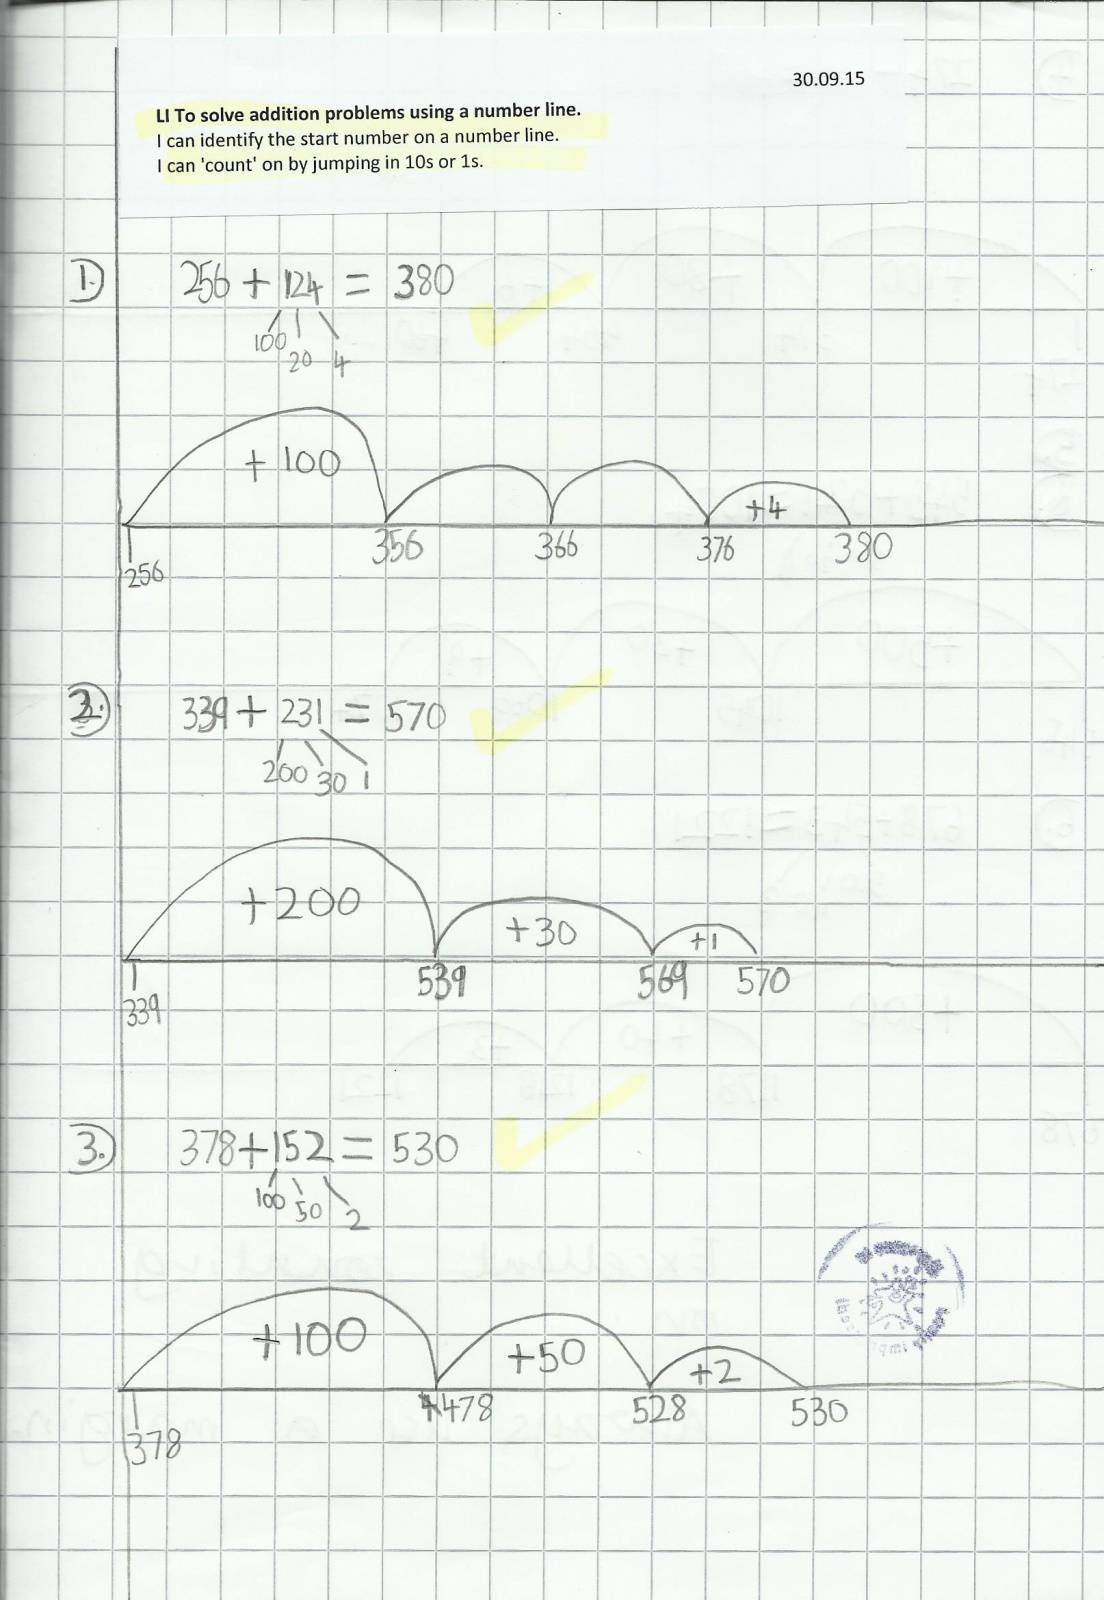 30.09.15
LI To solve addition problems using a number line.
I can identify the start number on a number line.
I can 'count' on by jumping in 10s or 1s.
1. 256 + 124 = 380
100 20 4
+ 100 +4
256 356 366 376 380
2. 339 + 231 = 570
200 30 1
+200 +30 +1
339 539 569 570
3. 378+152 = 530
100 50 2
+100 +50 +2
378 478 528 530